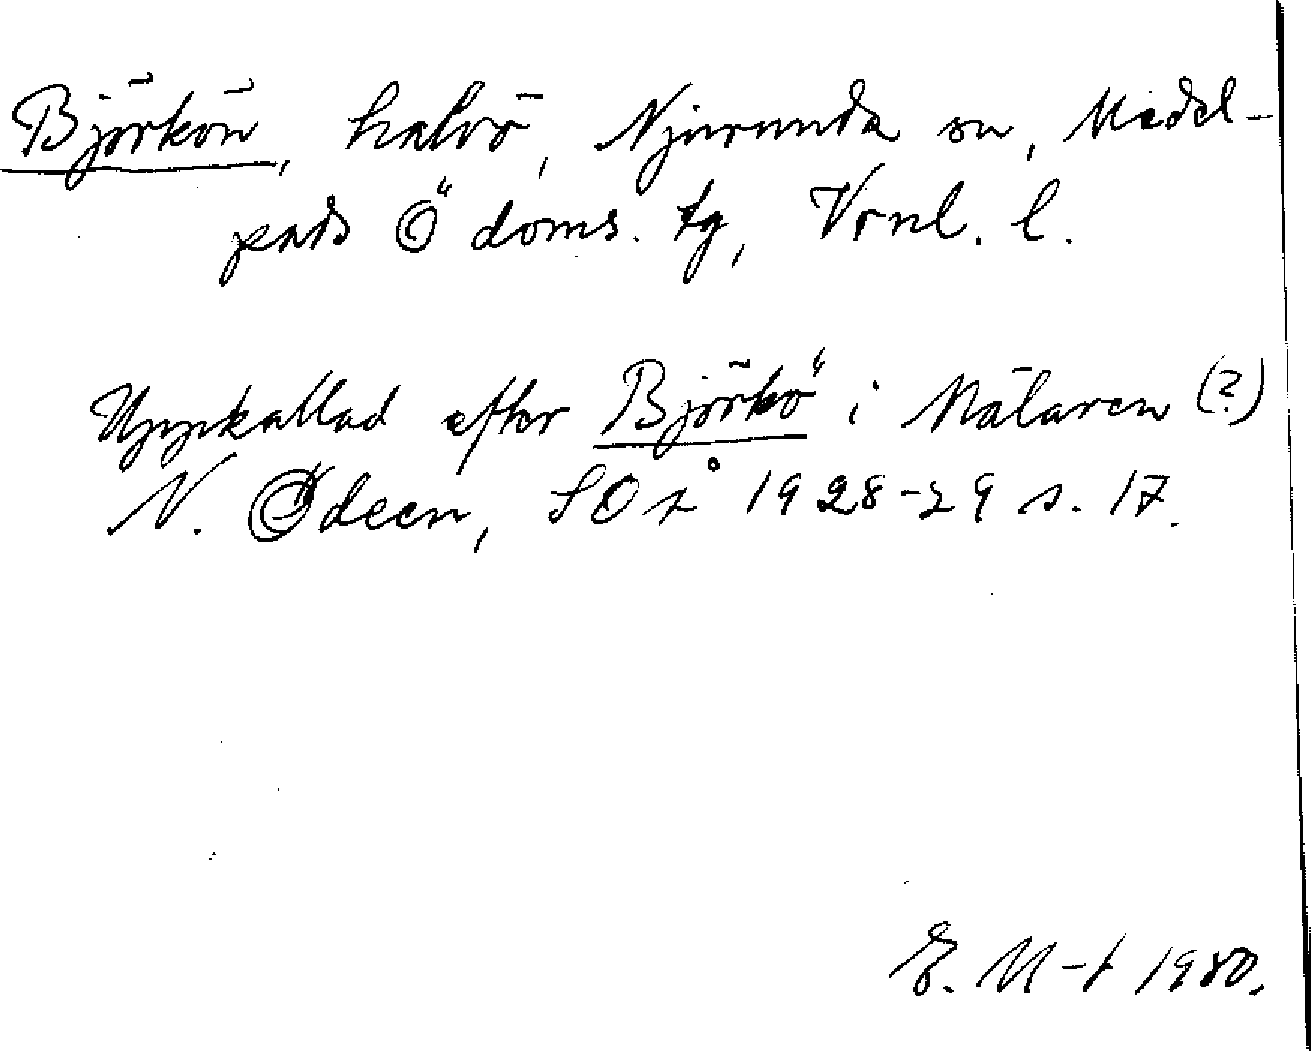 Björkön, halvö, Njurunda sn, Medel-
pads Ö doms. tg, Vrnl. l.
Uppkallad efter Björkö i Mälaren (?)
N. Ödeen, SOÅ 1928-29 s. 17.
E. M-t 1980.